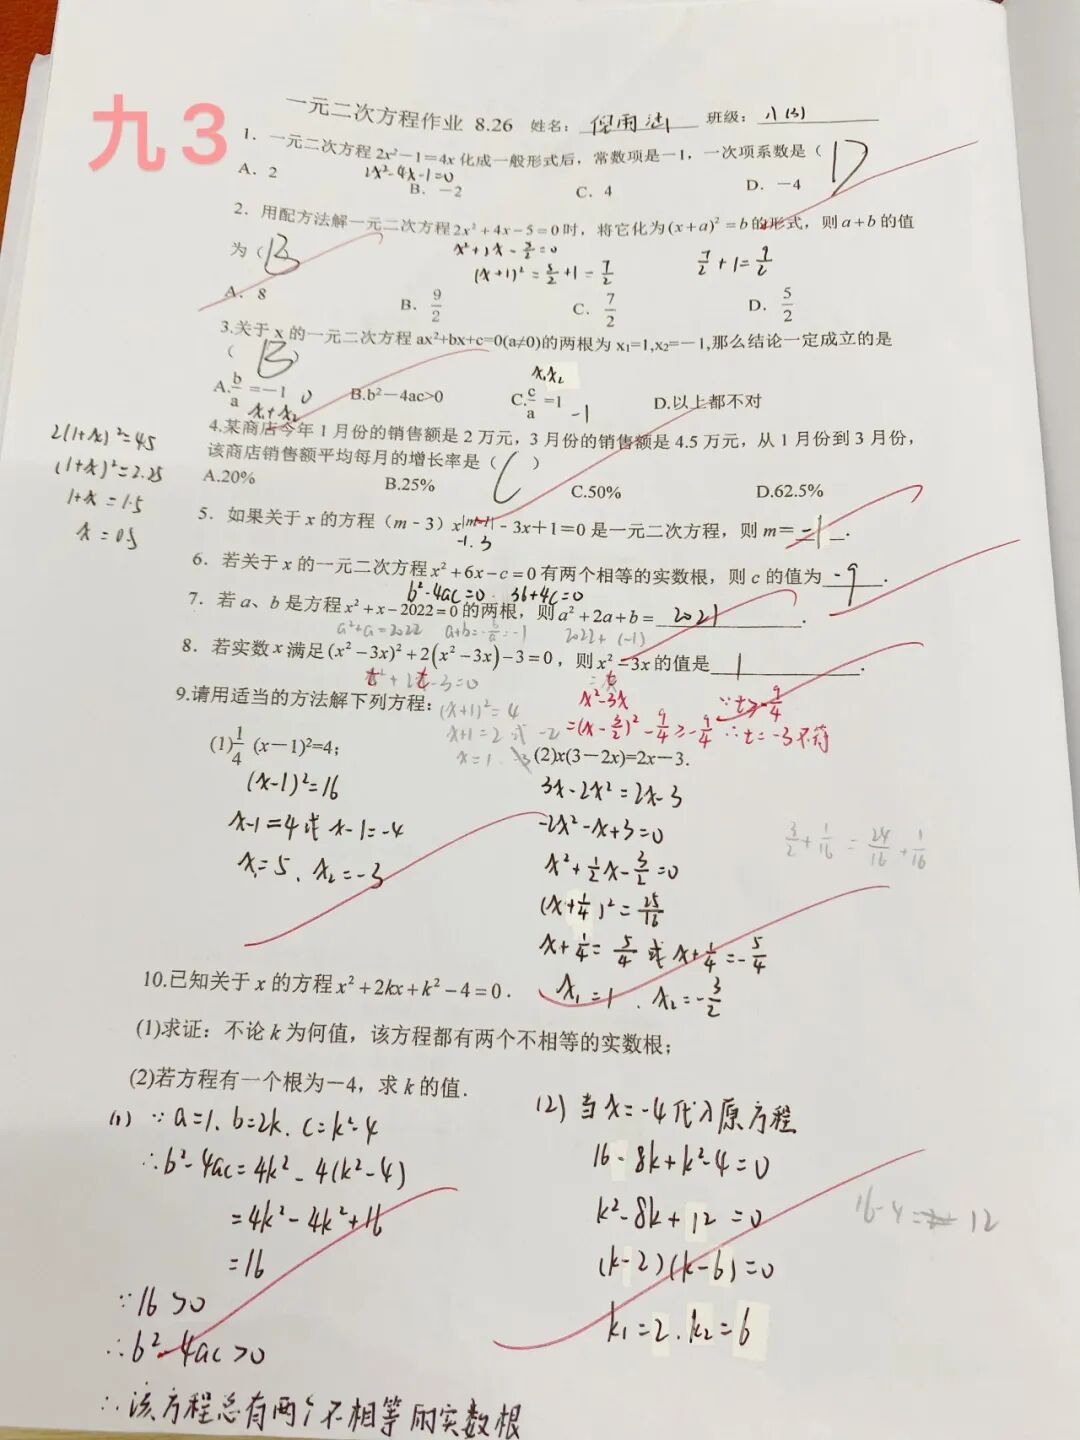 九3
一元二次方程作业 8.26 姓名: 班级: 八(3)
1. 一元二次方程2x²-1=4x化成一般形式后,常数项是-1,一次项系数是( D
2x²-4x-1=0
A. 2 B. -2 C. 4 D. -4
2. 用配方法解一元二次方程2x²+4x-5=0时,将它化为(x+a)²=b的形式,则a+b的值
为( B
x²+2x-5/2=0
(x+1)²=5/2+1=7/2
7/2+1=9/2
A. 8 B. 9/2 C. 7/2 D. 5/2
3.关于x的一元二次方程ax²+bx+c=0(a≠0)的两根为x₁=1,x₂=-1,那么结论一定成立的是
( B )
x₁x₂
A.b/a=-1 0 B.b²-4ac>0 C.c/a=1 -1 D.以上都不对
x₁+x₂
4.某商店今年1月份的销售额是2万元,3月份的销售额是4.5万元,从1月份到3月份,
该商店销售额平均每月的增长率是( C )
A.20% B.25% C.50% D.62.5%
2(1+x)²=4.5
(1+x)²=2.25
1+x=1.5
x=0.5
5. 如果关于x的方程(m-3)x^|m-1|-3x+1=0是一元二次方程,则m=-1.
-1.3
6. 若关于x的一元二次方程x²+6x-c=0有两个相等的实数根,则c的值为-9.
b²-4ac=0 36+4c=0
7. 若a、b是方程x²+x-2022=0的两根,则a²+2a+b=2021.
a²+a=2022 a+b=-b/a=-1 2022+(-1)
8. 若实数x满足(x²-3x)²+2(x²-3x)-3=0,则x²-3x的值是1.
t²+2t-3=0 =t
(x+1)²=4
x+1=2或-2
x=1.-3
x²-3x
=(x-3/2)²-9/4≥-9/4
∵t≥-9/4
∴t=-3不符
9.请用适当的方法解下列方程:
(1)1/4(x-1)²=4;
(x-1)²=16
x-1=4或x-1=-4
x₁=5、x₂=-3
(2)x(3-2x)=2x-3.
3x-2x²=2x-3
-2x²-x+3=0
x²+1/2x-3/2=0
(x+1/4)²=25/16
x+1/4=5/4或x+1/4=-5/4
x₁=1.x₂=-3/2
3/2+1/16=24/16+1/16
10.已知关于x的方程x²+2kx+k²-4=0.
(1)求证:不论k为何值,该方程都有两个不相等的实数根;
(2)若方程有一个根为-4,求k的值.
(1) ∵a=1.b=2k.c=k²-4
∴b²-4ac=4k²-4(k²-4)
=4k²-4k²+16
=16
∵16>0
∴b²-4ac>0
∴该方程总有两个不相等的实数根
(2) 当x=-4代入原方程
16-8k+k²-4=0
k²-8k+12=0
(k-2)(k-6)=0
k₁=2.k₂=6
16-4= 12